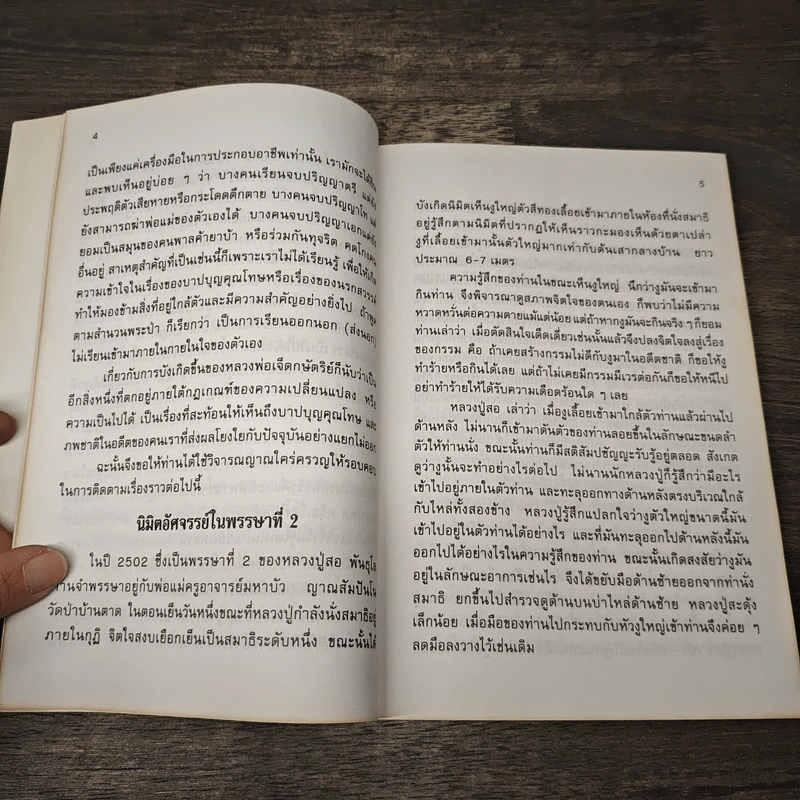 4
เป็นเพียงแค่เครื่องมือในการประกอบอาชีพเท่านั้น เรามักจะได้ยิน
และพบเห็นอยู่บ่อย ๆ ว่า บางคนเรียนจบปริญญาตรี แต่ยัง
ประพฤติตัวเสียหายหรือกระโดดตึกตาย บางคนจบปริญญาโท แต่
ยังสามารถฆ่าพ่อแม่ของตัวเองได้ บางคนจบปริญญาเอกแต่ยัง
ยอมเป็นสมุนของคนพาลค้ายาบ้า หรือร่วมกันทุจริต คดโกงคน
อื่นอยู่ สาเหตุสำคัญที่เป็นเช่นนี้ก็เพราะเราไม่ได้เรียนรู้ เพื่อให้เกิด
ความเข้าใจในเรื่องของบาปบุญคุณโทษหรือเรื่องของนรกสวรรค์
ทำให้มองข้ามสิ่งที่อยู่ใกล้ตัวและมีความสำคัญอย่างยิ่งไป ถ้าพูด
ตามสำนวนพระป่า ก็เรียกว่า เป็นการเรียนออกนอก (ส่งนอก)
ไม่เรียนเข้ามาภายในภายในใจของตัวเอง
เกี่ยวกับการบังเกิดขึ้นของหลวงพ่อเจ็ดกษัตริย์ก็นับว่าเป็น
อีกสิ่งหนึ่งที่ตกอยู่ภายใต้กฎเกณฑ์ของความเปลี่ยนแปลง หรือ
ความเป็นไปได้ เป็นเรื่องที่สะท้อนให้เห็นถึงบาปบุญคุณโทษ และ
ภพชาติในอดีตของคนเราที่ส่งผลโยงใยกับปัจจุบันอย่างแยกไม่ออก
ฉะนั้นจึงขอให้ท่านได้ใช้วิจารณญาณใคร่ครวญให้รอบคอบ
ในการติดตามเรื่องราวต่อไปนี้
นิมิตอัศจรรย์ในพรรษาที่ 2
ในปี 2502 ซึ่งเป็นพรรษาที่ 2 ของหลวงปู่สอ พันธุโล
ท่านจำพรรษาอยู่กับพ่อแม่ครูอาจารย์มหาบัว ญาณสัมปันโน
วัดป่าบ้านตาด ในตอนเย็นวันหนึ่งขณะที่หลวงปู่กำลังนั่งสมาธิอยู่
ภายในกุฏิ จิตใจสงบเยือกเย็นเป็นสมาธิระดับหนึ่ง ขณะนั้นได้
5
บังเกิดนิมิตเห็นงูใหญ่ตัวสีทองเลื้อยเข้ามาภายในห้องที่นั่งสมาธิ
อยู่รู้สึกตามนิมิตที่ปรากฏให้เห็นราวกะมองเห็นด้วยตาเปล่า
งูที่เลื้อยเข้ามานั้นตัวใหญ่มากเท่ากับต้นเสากลางบ้าน ยาว
ประมาณ 6-7 เมตร
ความรู้สึกของท่านในขณะเห็นงูใหญ่ นึกว่างูมันจะเข้ามา
กินท่าน จึงพิจารณาดูสภาพจิตใจของตนเอง ก็พบว่าไม่มีความ
หวาดหวั่นต่อความตายแม้แต่น้อย แต่ถ้าหากงูมันจะกินจริง ๆ ก็ยอม
ท่านเล่าว่า เมื่อตัดสินใจเด็ดเดี่ยวเช่นนั้นแล้วจึงปลงจิตใจลงสู่เรื่อง
ของกรรม คือ ถ้าเคยสร้างกรรมไม่ดีกับงูมาในอดีตชาติ ก็ขอให้งู
ทำร้ายหรือกินได้เลย แต่ถ้าไม่เคยมีกรรมมีเวรต่อกันก็ขอให้หนีไป
อย่าทำร้ายให้ได้รับความเดือดร้อนใด ๆ เลย
หลวงปู่สอ เล่าว่า เมื่องูเลื้อยเข้ามาใกล้ตัวท่านแล้วผ่านไป
ด้านหลัง ไม่นานก็เข้ามาดันตัวของท่านลอยขึ้นในลักษณะขนดลำ
ตัวให้ท่านนั่ง ขณะนั้นท่านก็มีสติสัมปชัญญะรับรู้อยู่ตลอด สังเกต
ดูว่างูนั้นจะทำอย่างไรต่อไป ไม่นานนักหลวงปู่ก็รู้สึกว่ามีอะไร
เข้าไปอยู่ภายในตัวท่าน และทะลุออกทางด้านหลังตรงบริเวณใกล้
กับไหล่ทั้งสองข้าง หลวงปู่รู้สึกแปลกใจว่างูตัวใหญ่ขนาดนี้มัน
เข้าไปอยู่ในตัวท่านได้อย่างไร และที่มันทะลุออกไปด้านหลังนี้มัน
ออกไปได้อย่างไรในความรู้สึกของท่าน ขณะนั้นเกิดสงสัยว่างูมัน
อยู่ในลักษณะอาการเช่นไร จึงได้ขยับมือด้านซ้ายออกจากท่านั่ง
สมาธิ ยกขึ้นไปสำรวจดูด้านบนบ่าไหล่ด้านซ้าย หลวงปู่สะดุ้ง
เล็กน้อย เมื่อมือของท่านไปกระทบกับหัวงูใหญ่เข้าท่านจึงค่อย ๆ
ลดมือลงวางไว้เช่นเดิม